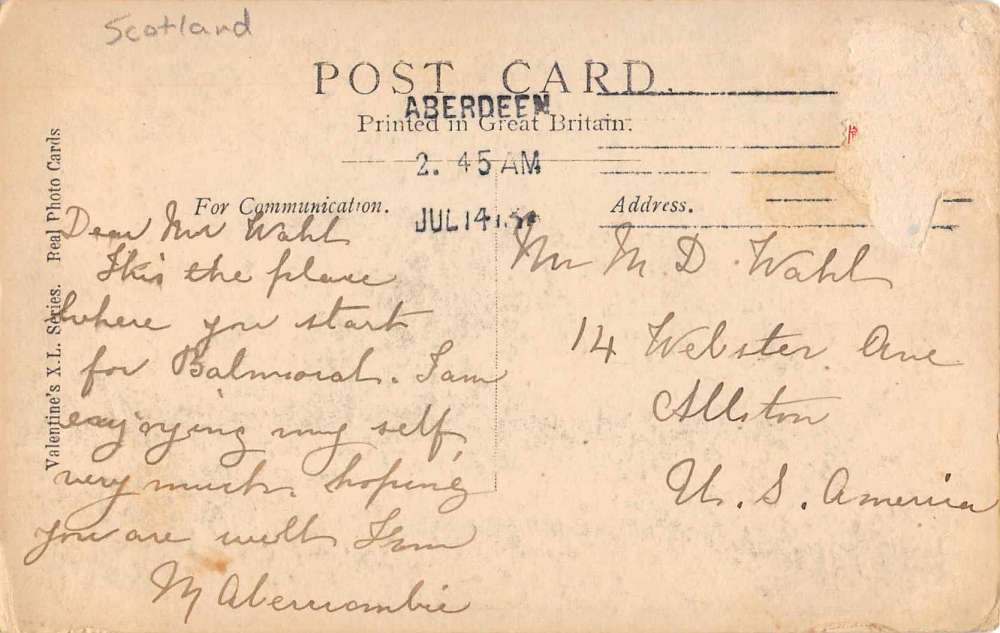 Scotland
POST CARD.
ABERDEEN
Printed in Great Britain.
2. 45 AM
JUL 14
Valentine's X.L. Series. Real Photo Cards
For Communication.
Dear Mr Wahl
This the place
where you start
for Balmoral. I am
enjoying my self,
very much, hoping
you are well I am
M Abercrombie
Address.
Mr M. D. Wahl
14 Webster Ave
Allston
U. S. America